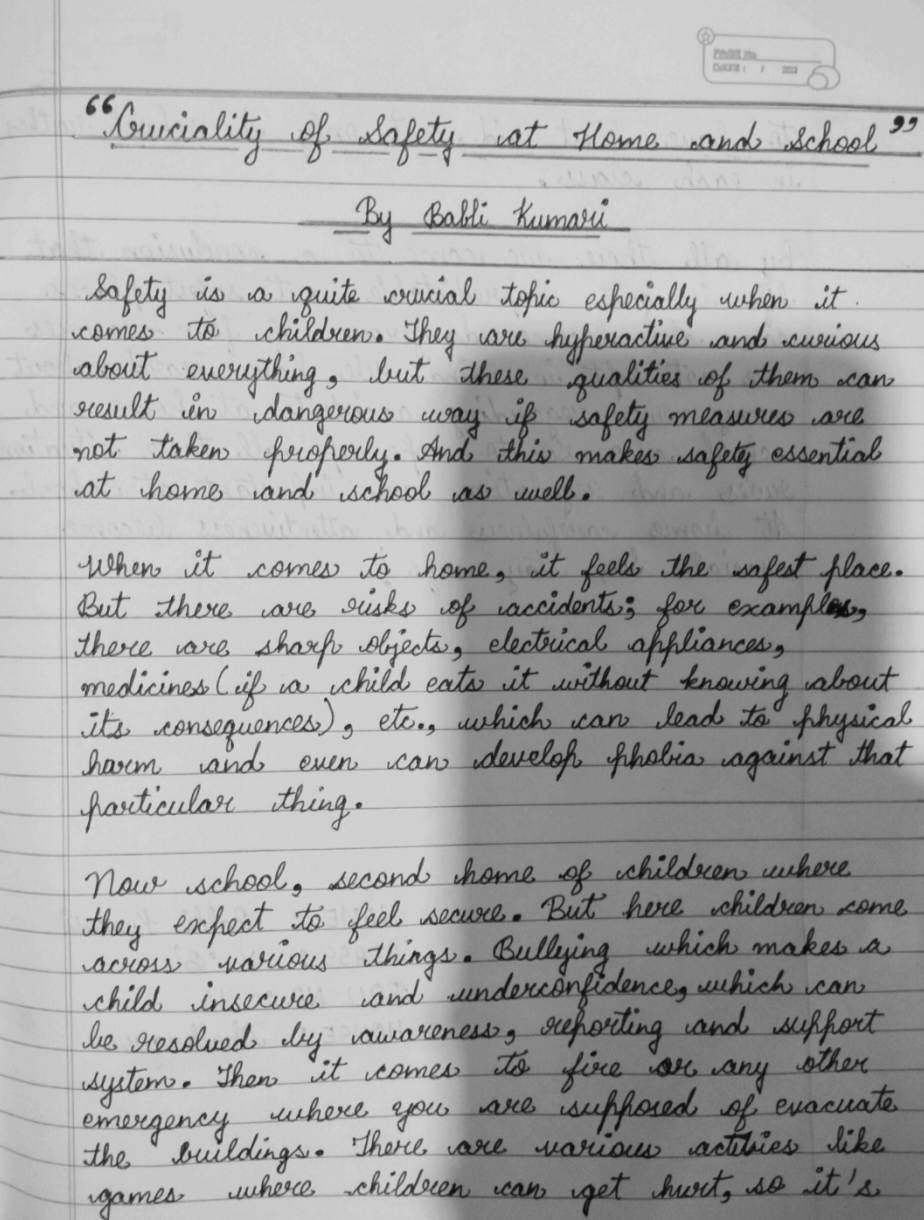 PAGE No.
DATE: / 202
"Cruciality of Safety at Home and School"
By Babli Kumari
Safety is a quite crucial topic especially when it
comes to children. They are hyperactive and curious
about everything, but these qualities of them can
result in dangerous way if safety measures are
not taken properly. And this makes safety essential
at home and school as well.
When it comes to home, it feels the safest place.
But there are risks of accidents; for examples,
there are sharp objects, electrical appliances,
medicines (if a child eats it without knowing about
its consequences), etc., which can lead to physical
harm and even can develop phobia against that
particular thing.
Now school, second home of children where
they expect to feel secure. But here children come
across various things. Bullying which makes a
child insecure and underconfidence, which can
be resolved by awareness, reporting and support
system. Then it comes to fire or any other
emergency where you are supposed of evacuate
the buildings. There are various activies like
games where children can get hurt, so it's